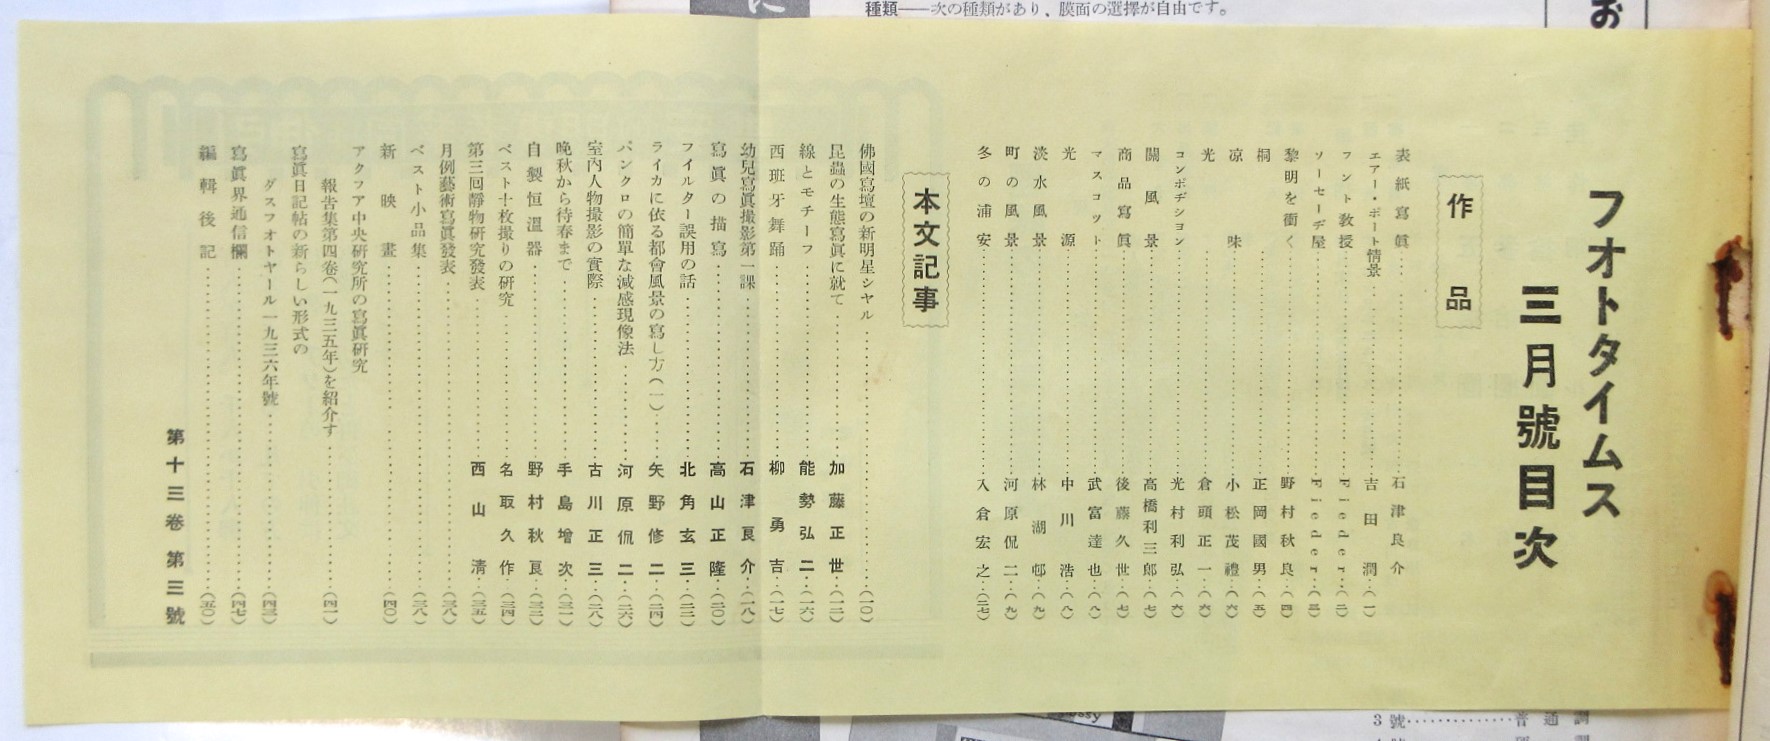 フオトタイムス
三月號目次
作品
表紙寫眞 石津良介
エアー・ポート情景 吉田潤 (一)
フント敎授 Fieder (二)
ソーセーヂ屋 Fieder (三)
黎明を衝く 野村秋良 (四)
桐 正岡國男 (五)
凉味 小松茂禮 (六)
光 倉頭正一 (六)
コンポヂシヨン 光村利弘 (六)
關風景 高橋利三郎 (七)
商品寫眞 後藤久世 (七)
マスコツト 武富達也 (八)
光源 中川浩 (八)
淡水風景 林湖邨 (九)
町の風景 河原侃二 (九)
冬の浦安 入倉宏之 (二七)
本文記事
佛國寫壇の新明星シヤル (一〇)
昆蟲の生態寫眞に就て 加藤正世 (一二)
線とモチーフ 能勢弘二 (一六)
西班牙舞踊 柳勇吉 (一七)
幼兒寫眞撮影第一課 石津良介 (一八)
寫眞の描寫 高山正隆 (二〇)
フイルター誤用の話 北角玄三 (二三)
ライカに依る都會風景の寫し方(一) 矢野修二 (二四)
パンクロの簡單な減感現像法 河原侃二 (二六)
室內人物撮影の實際 古川正三 (二八)
晩秋から待春まで 手島增次 (三一)
自製恒溫器 野村秋良 (三三)
ベスト十枚撮りの硏究 名取久作 (三四)
第三回靜物硏究發表 西山淸 (三五)
月例藝術寫眞發表 (三八)
ベスト小品集 (三八)
新映畫 (四〇)
アクフア中央硏究所の寫眞硏究
報吿集第四卷(一九三五年)を紹介す (四一)
寫眞日記帖の新らしい形式の
ダスフオトヤール一九三六年號 (四三)
寫眞界通信欄 (四七)
編輯後記 (五〇)
第十三卷 第三號
種類――次の種類があり、膜面の選擇が自由です。
に
お
3號 普通調